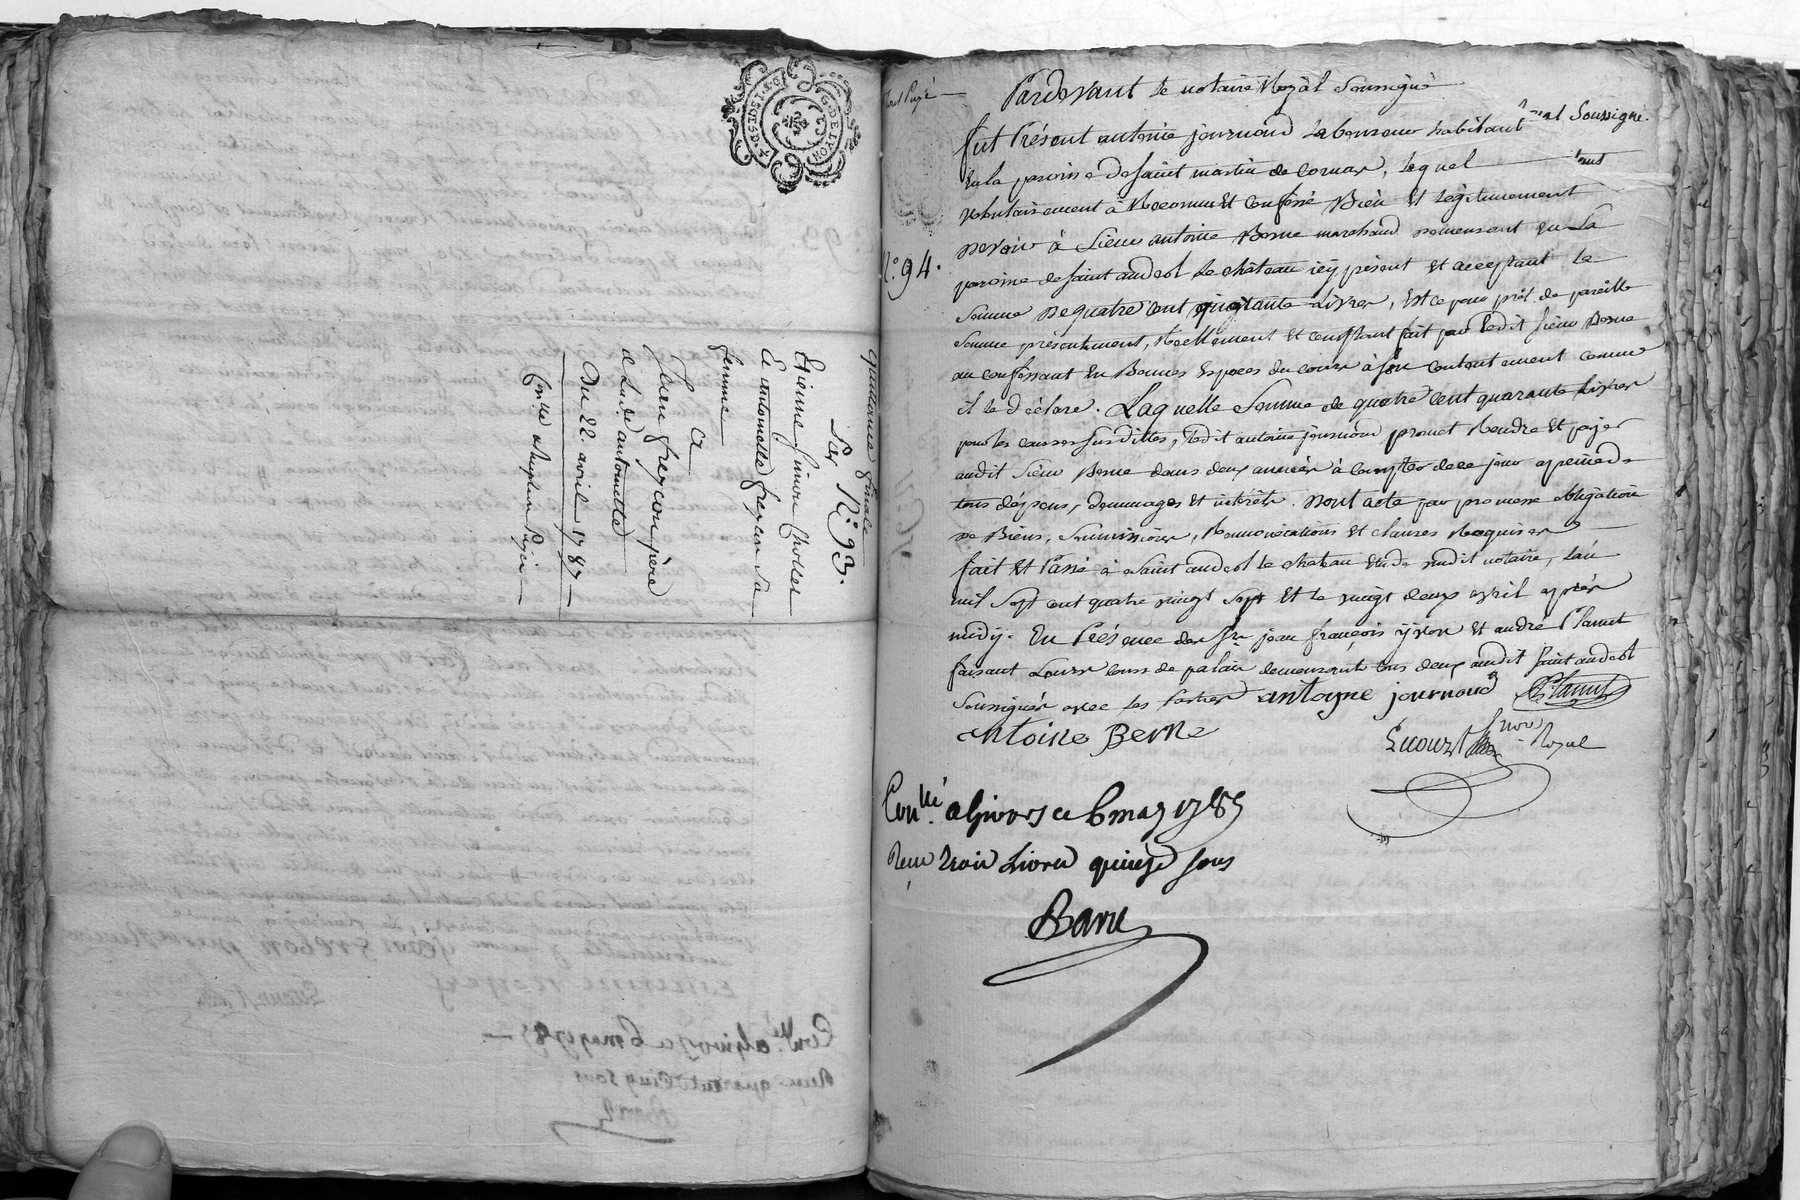 GDELYON
quittance finale
Par N.° 93.
Etienne
Et antoinette freycon sa
femme
a
Jean freycon père
a Lad.e antoinette
Du 22. avril 1787
N.° 94.
Pardevant Le notaire Royal Soussigné
Royal Soussigné.
fut Présent antoine journoud Laboureur habitant
En la paroisse de saint martin de Cornas, Lequel
volontairement à Reconnu Et Confessé Bien Et Légitimement
devoir à Sieur antoine Berne marchand demeurant En La
paroisse de saint andéol Le château icy présent Et acceptant, La
Somme de quatre cent quarante Livres, Est ce pour prêt de pareille
Somme présentement, Réellement Et Comptant fait par Ledit sieur Berne
au confessant En Bonnes Espèces du cours à son contentement comme
il le déclare. Laquelle Somme de quatre cent quarante Livres
pour les causes susdittes, Ledit antoine journoud promet Rendre Et payer
audit Sieur Berne dans deux années à compter de ce jour a peine de
tous dépens, dommages Et intérêts. Dont acte par promesse obligation
de Biens, Soumissions, Renonciations Et clauses Requises
fait Et Passé à Saint andéol le chateau Etude dudit notaire, L'an
mil Sept cent quatre vingt Sept Et le vingt deux avril après
midy. En Présence des Srs jean françois yvron Et andré Planut
faisant Leurs cours de palais demeurants tous deux audit Saint andéol
Soussignés avec les Parties antoyne journoud
Antoine Berne
Royal
Conllé a Givors ce 6 may 1787
Reçu trois Livres quinze sous